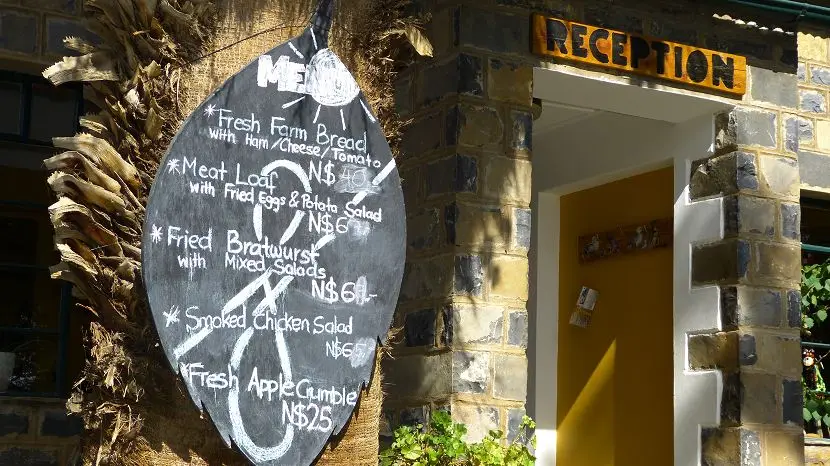 RECEPTION
MENU
* Fresh Farm Bread
with Ham/Cheese/Tomato
N$ 40
* Meat Loaf
with Fried Eggs & Potato Salad
N$6
* Fried Bratwurst
with Mixed Salads
N$6
* Smoked Chicken Salad
N$65
* Fresh Apple Crumble
N$25